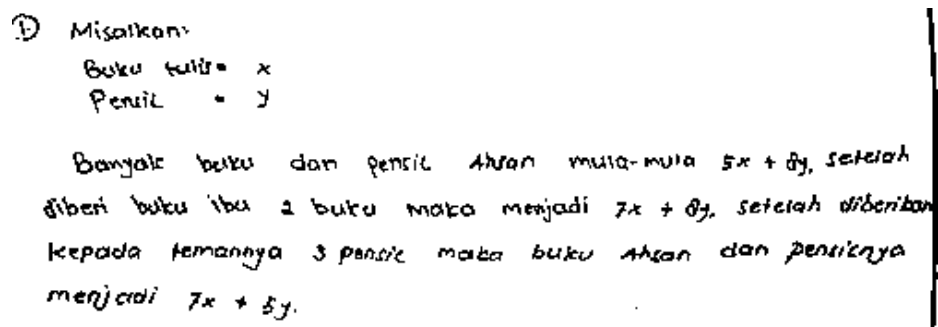 ① Misalkan:
Buku tulis = x
Pensil = y
Banyak buku dan pensil Ahsan mula-mula 5x + 8y, setelah
diberi buku ibu 2 buku maka menjadi 7x + 8y. setelah diberikan
kepada temannya 3 pensil maka buku Ahsan dan pensilnya
menjadi 7x + 5y.